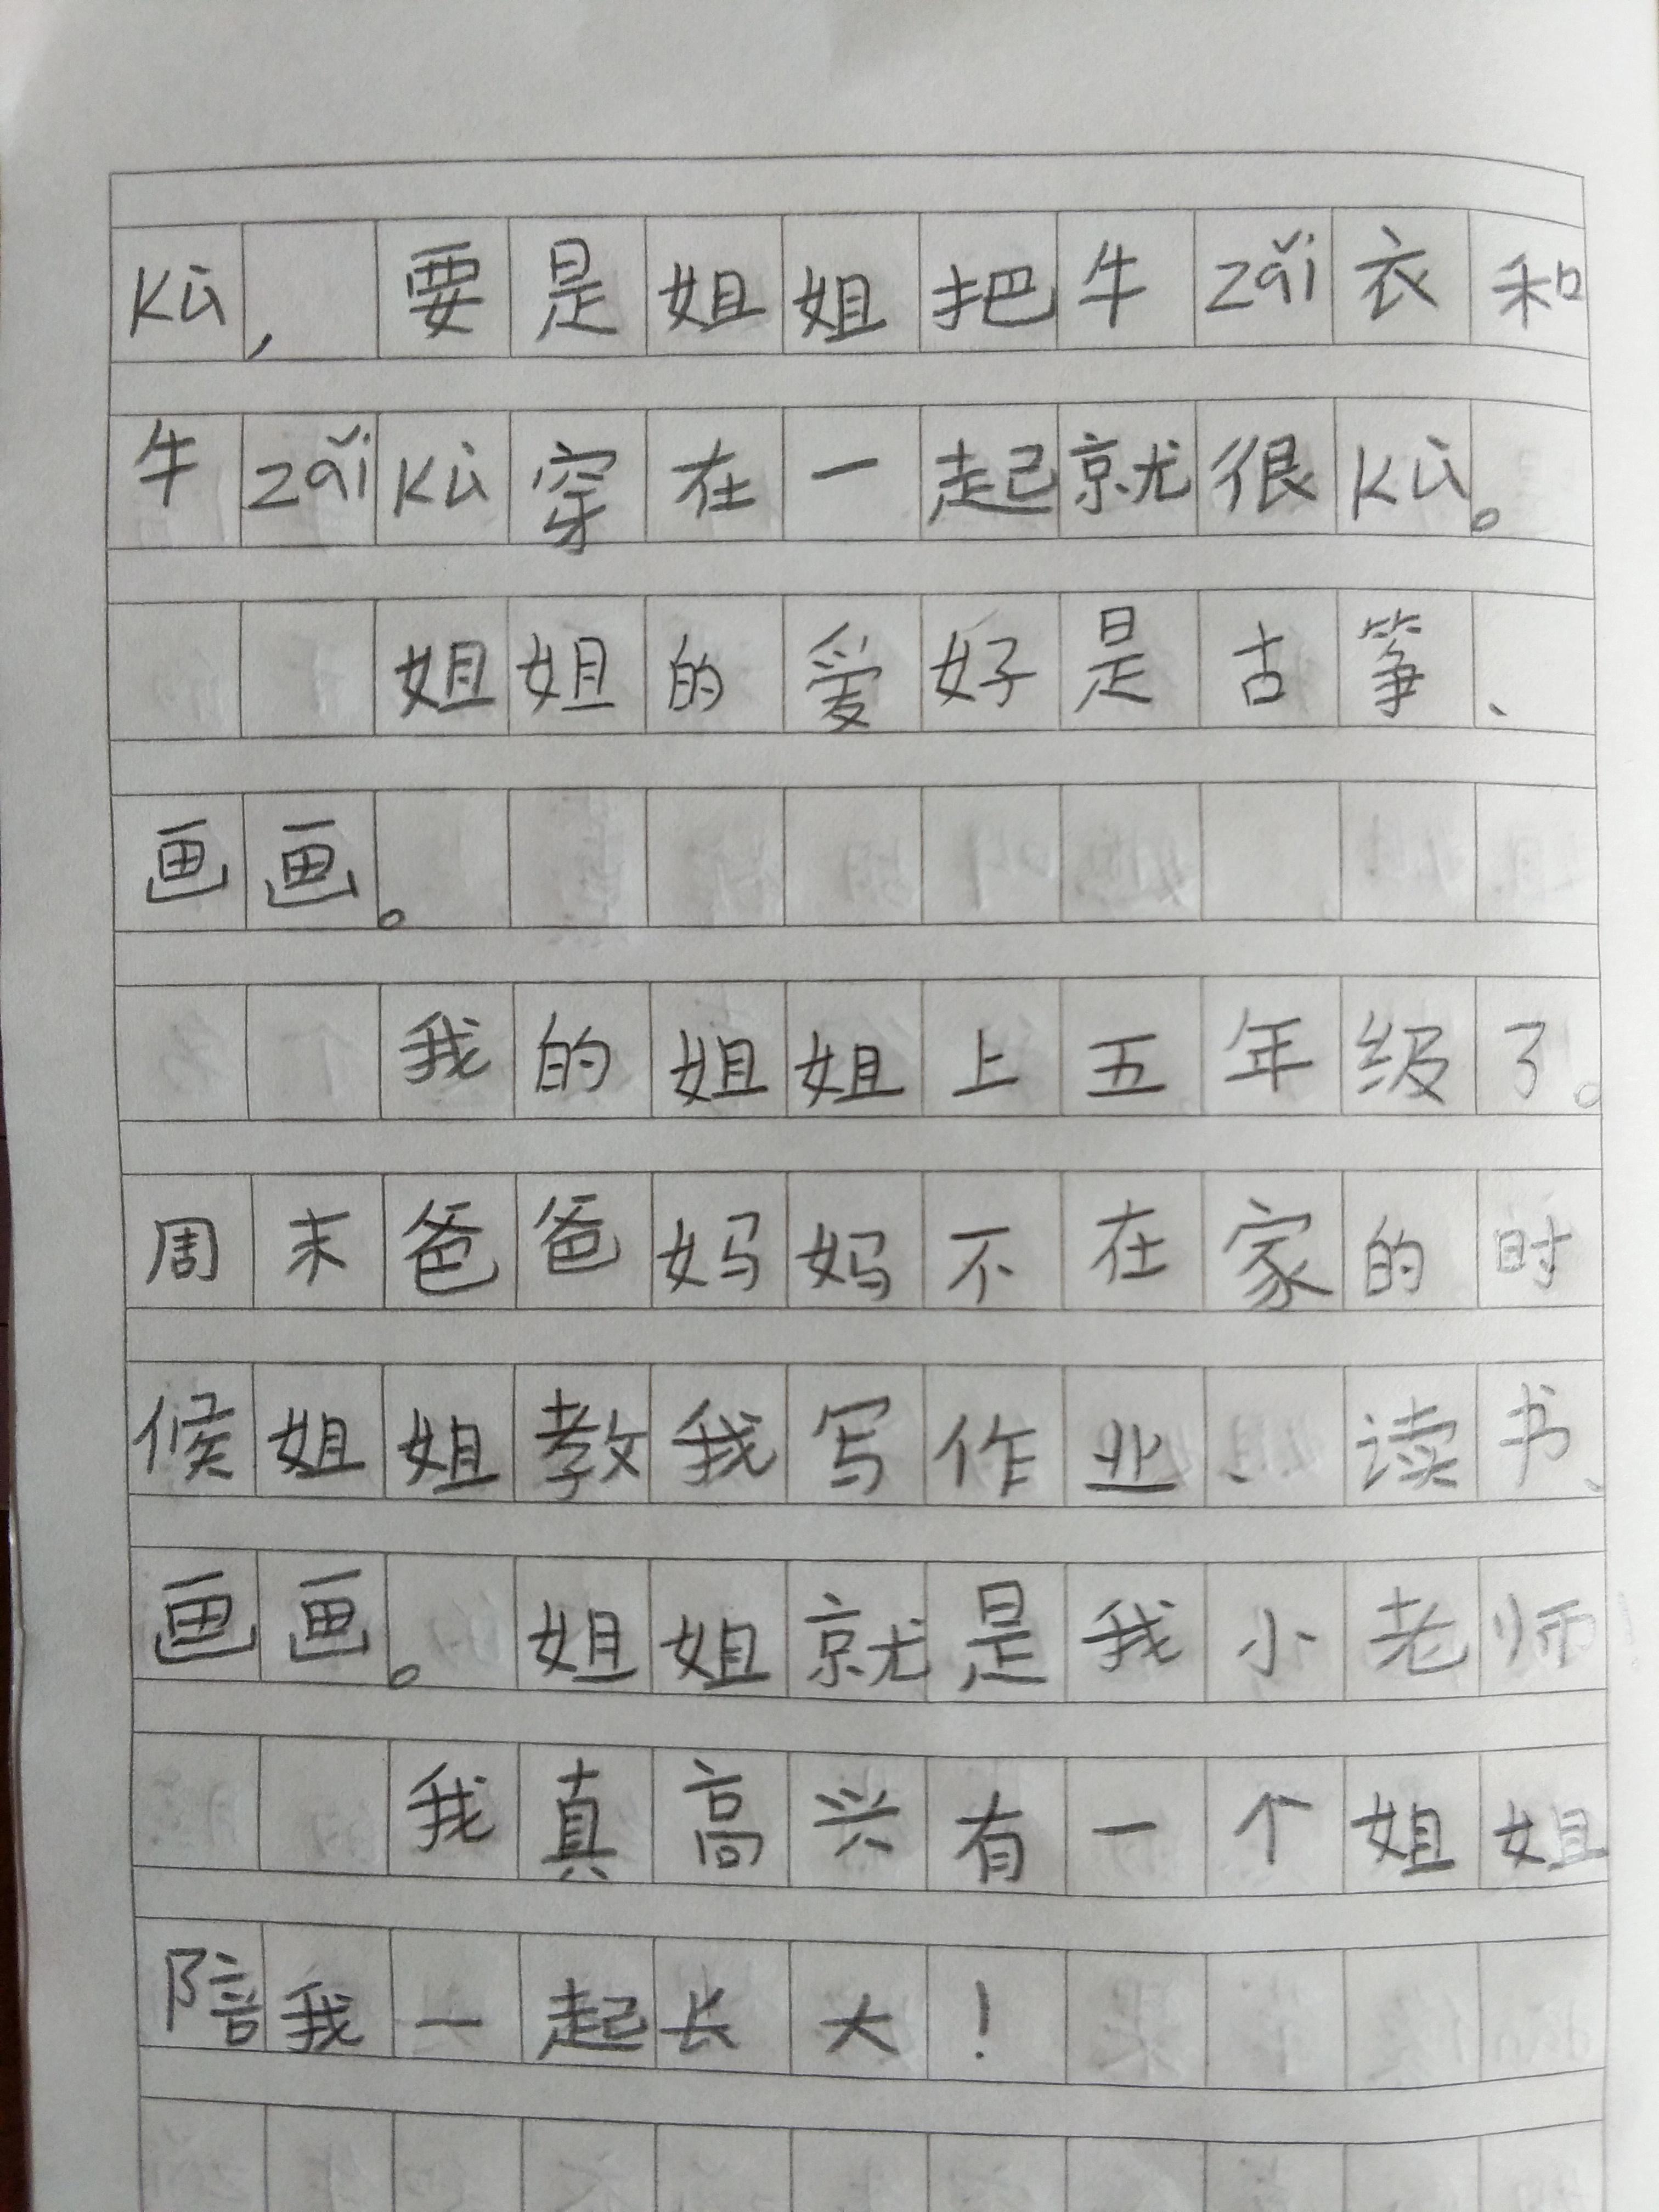 kù，要是姐姐把牛zǎi衣和
牛zǎikù穿在一起就很kù。
姐姐的爱好是古筝、
画画。
我的姐姐上五年级了。
周末爸爸妈妈不在家的时
候姐姐教我写作业、读书、
画画。姐姐就是我小老师！
我真高兴有一个姐姐
陪我一起长大！